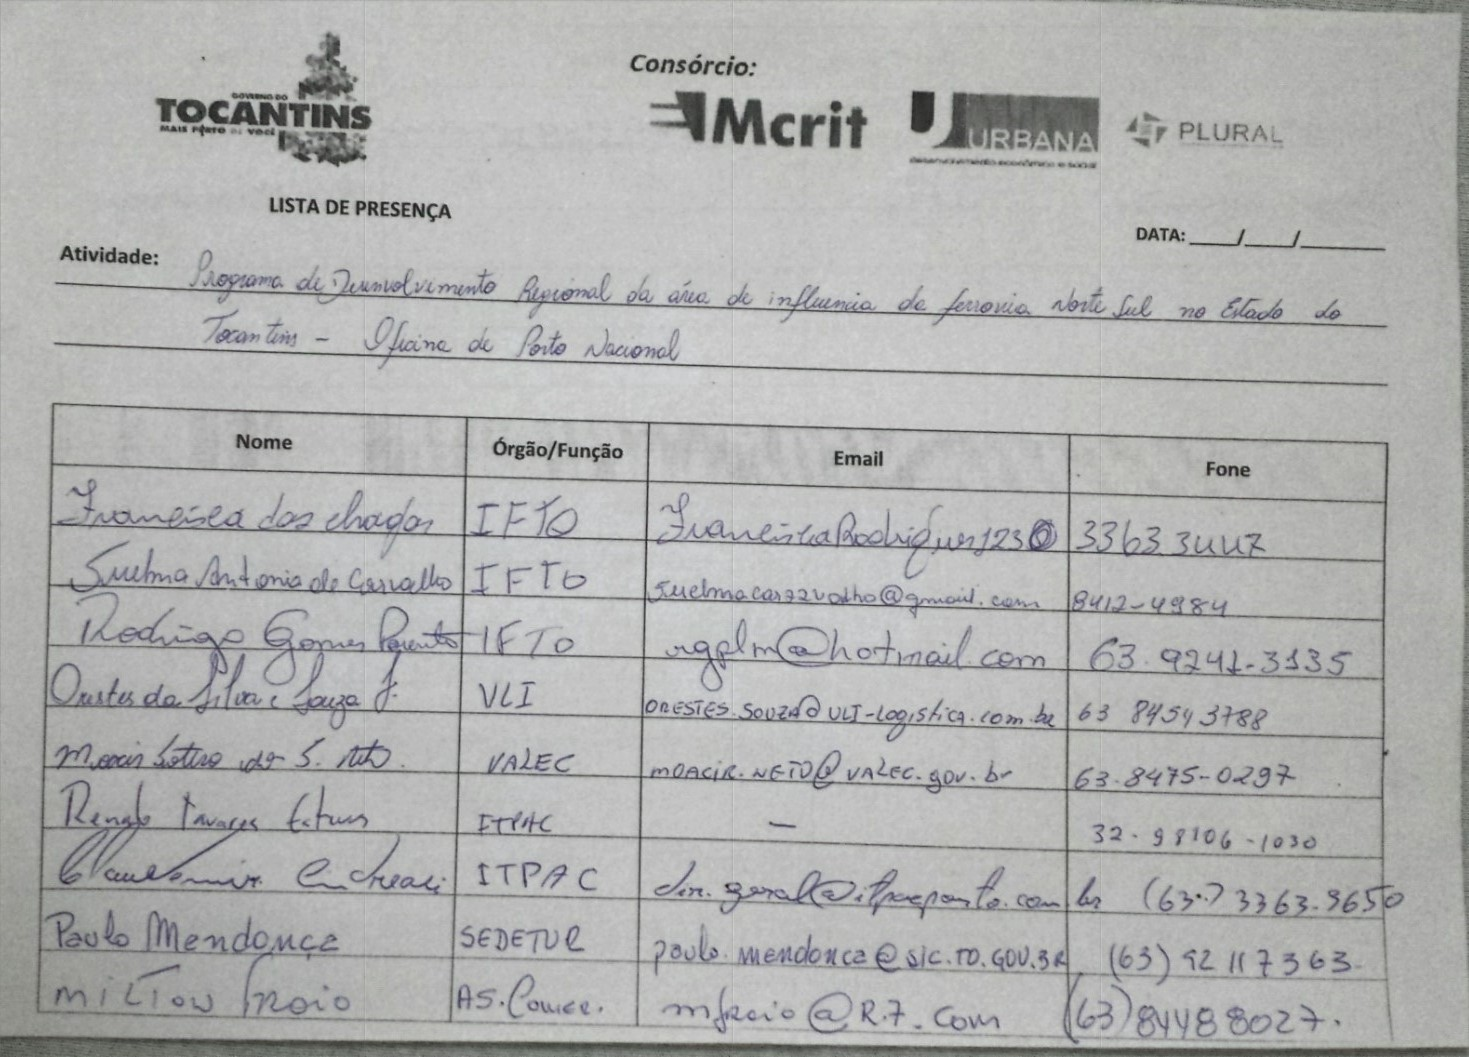 Consórcio:
GOVERNO DO
TOCANTINS
MAIS PERTO DE VOCÊ
Mcrit
URBANA
desenvolvimento econômico e social
PLURAL
LISTA DE PRESENÇA
DATA: ___/___/______
Atividade: Programa de Desenvolvimento Regional da área de influencia da ferrovia Norte Sul no Estado do
Tocantins - Oficina de Porto Nacional
Nome Órgão/Função Email Fone
Francisca das Chagas IFTO 3363 3447
Suelma Antonia de Carvalho IFTO 8412-4984
Rodrigo Gomes Parente IFTO rgplm@hotmail.com 63.9241-3135
Orestes da Silva e Souza J. VLI ORESTES.SOUZA@VLI-Logistica.com.br 63 84543788
VALEC MOACIR.NETO@VALEC.gov.br 63.8475-0297
Tavares ITPAC — 32.98106-1030
ITPAC dir.geral@itpacporto.com br (63.) 3363.9650
Paulo Mendonça SEDETUR paulo.mendonca@SIC.TO.GOV.BR (63) 92117363
milTon Froio AS.Comer. mfroio@R.7.com (63) 84488027.